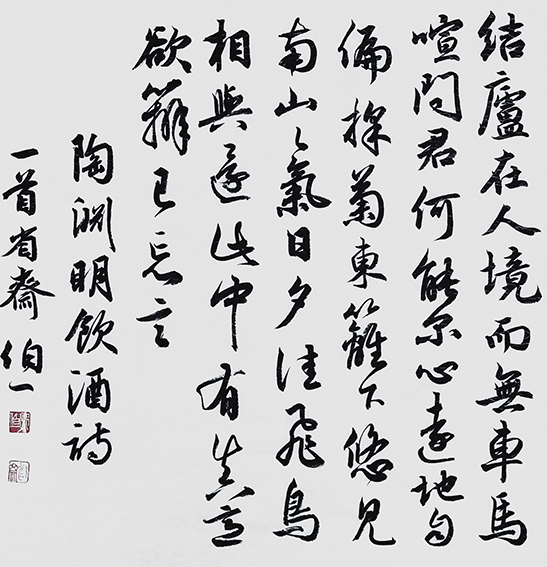 結廬在人境而無車馬
喧問君何能尔心遠地自
偏採菊東籬下悠見
南山〻氣日夕佳飛鳥
相與還此中有真意
欲辨已忘言
陶渊明飲酒詩
一首省齋伯一